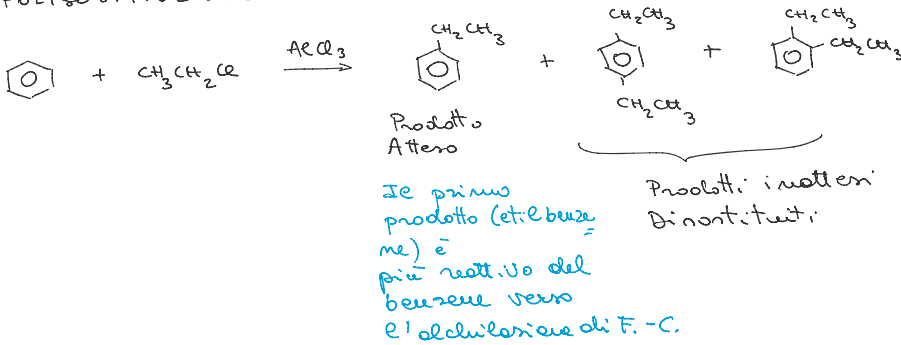 CH₂CH₃ CH₂CH₃ CH₂CH₃
+ CH₃CH₂Cl AlCl₃ + + CH₂CH₃
CH₂CH₃
Prodotto
Atteso
Prodotti inattesi
Disostituiti
Il primo
prodotto (etilbenze
ne) è
più reattivo del
benzene verso
l'alchilazione di F.-C.